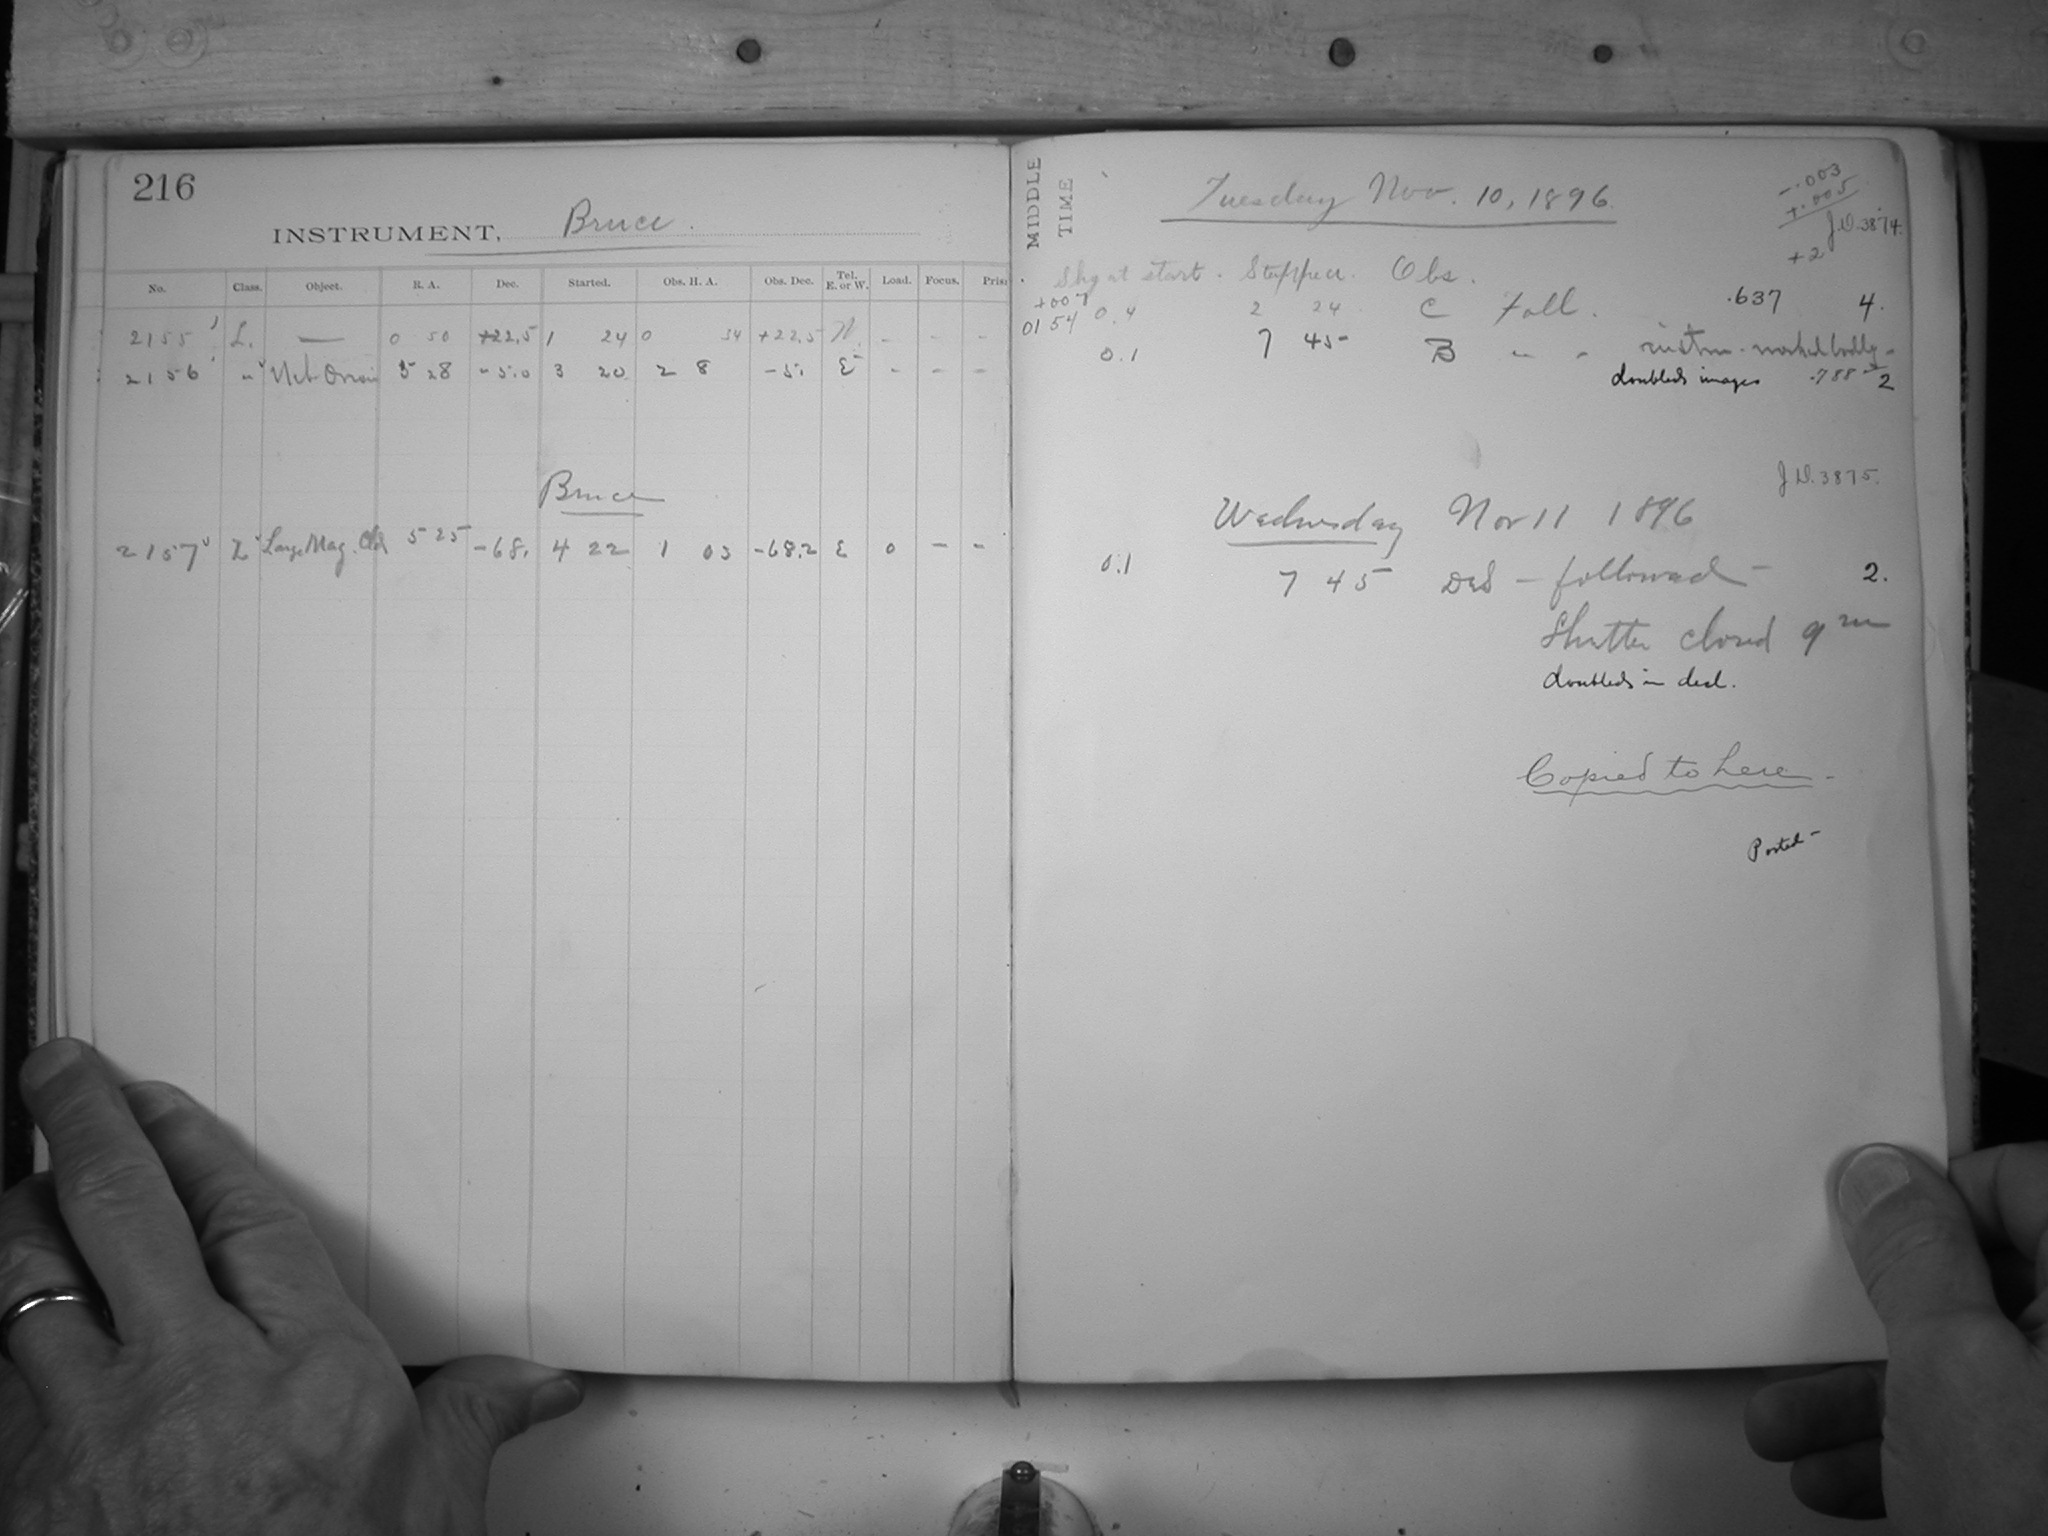 216
INSTRUMENT, Bruce.
No. Class. Object. R. A. Dec. Started. Obs. H. A. Obs. Dec. Tel. E. or W. Load. Focus. Pris
2155 L. — 0 50 +22.5 1 24 0 34 +22.5 W. - - -
2156 " Neb. Orion 5 28 -5.0 3 20 2 8 -5. E - - -
Bruce
2157 L Large Mag. Cld 5 25 -68. 4 22 1 03 -68.2 E 0 - -
MIDDLE TIME
Tuesday Nov. 10, 1896.
-.003
+.005
J.D. 3874.
+2
at start. Stopped. Obs.
+007
0154 0.4 2 24 C Foll. .637 4.
0.1 7 45 B " - instru. worked badly -
doubled images .788 2
J.D. 3875.
Wednesday Nov 11 1896
0.1 7 45 - followed - 2.
Shutter closed 9m
doubled in decl.
Copied to here -
Posted -